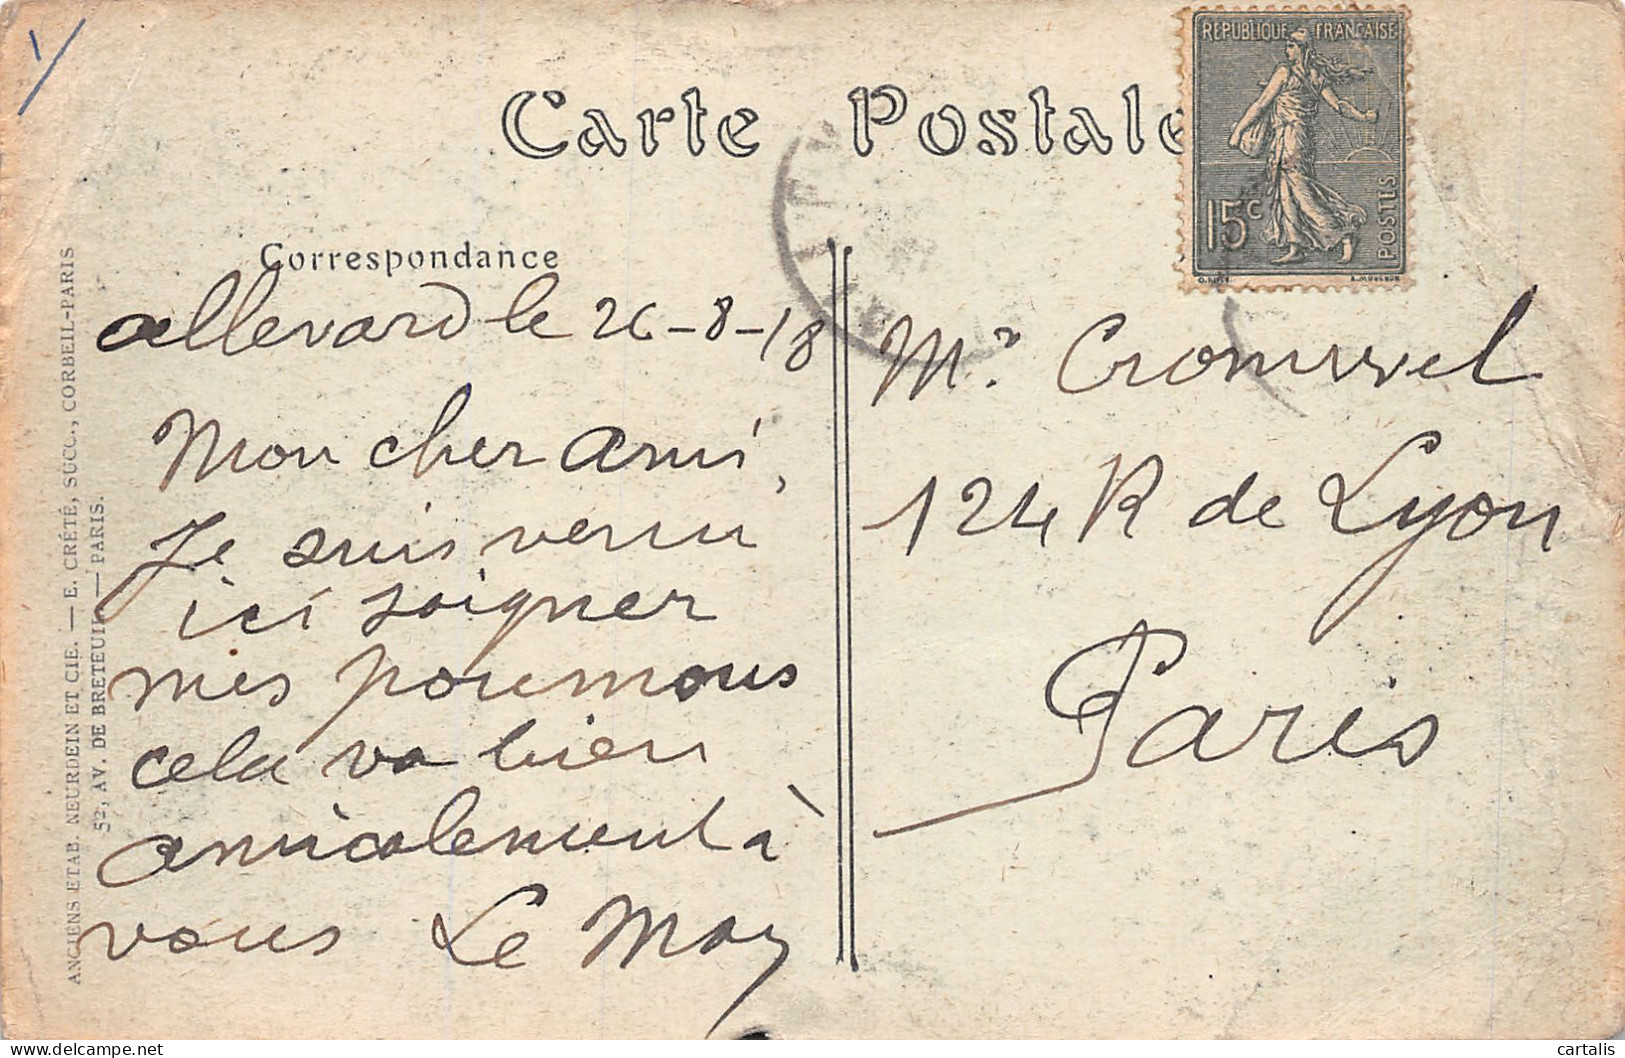 Carte Postale
REPUBLIQUE FRANÇAISE
15c
POSTES
Correspondance
allevard le 26-8-18
Mon cher ami,
Je suis venu
ici soigner
mes poumons
cela va bien
amicalement à
vous Le Moy
Mr. Cromwel
124 R de Lyon
Paris
ANCIENS ETAB. NEURDEIN ET CIE. — E. CRÉTÉ, SUCC., CORBEIL-PARIS
52, AV. DE BRETEUIL — PARIS.
delcampe.net
cartalis